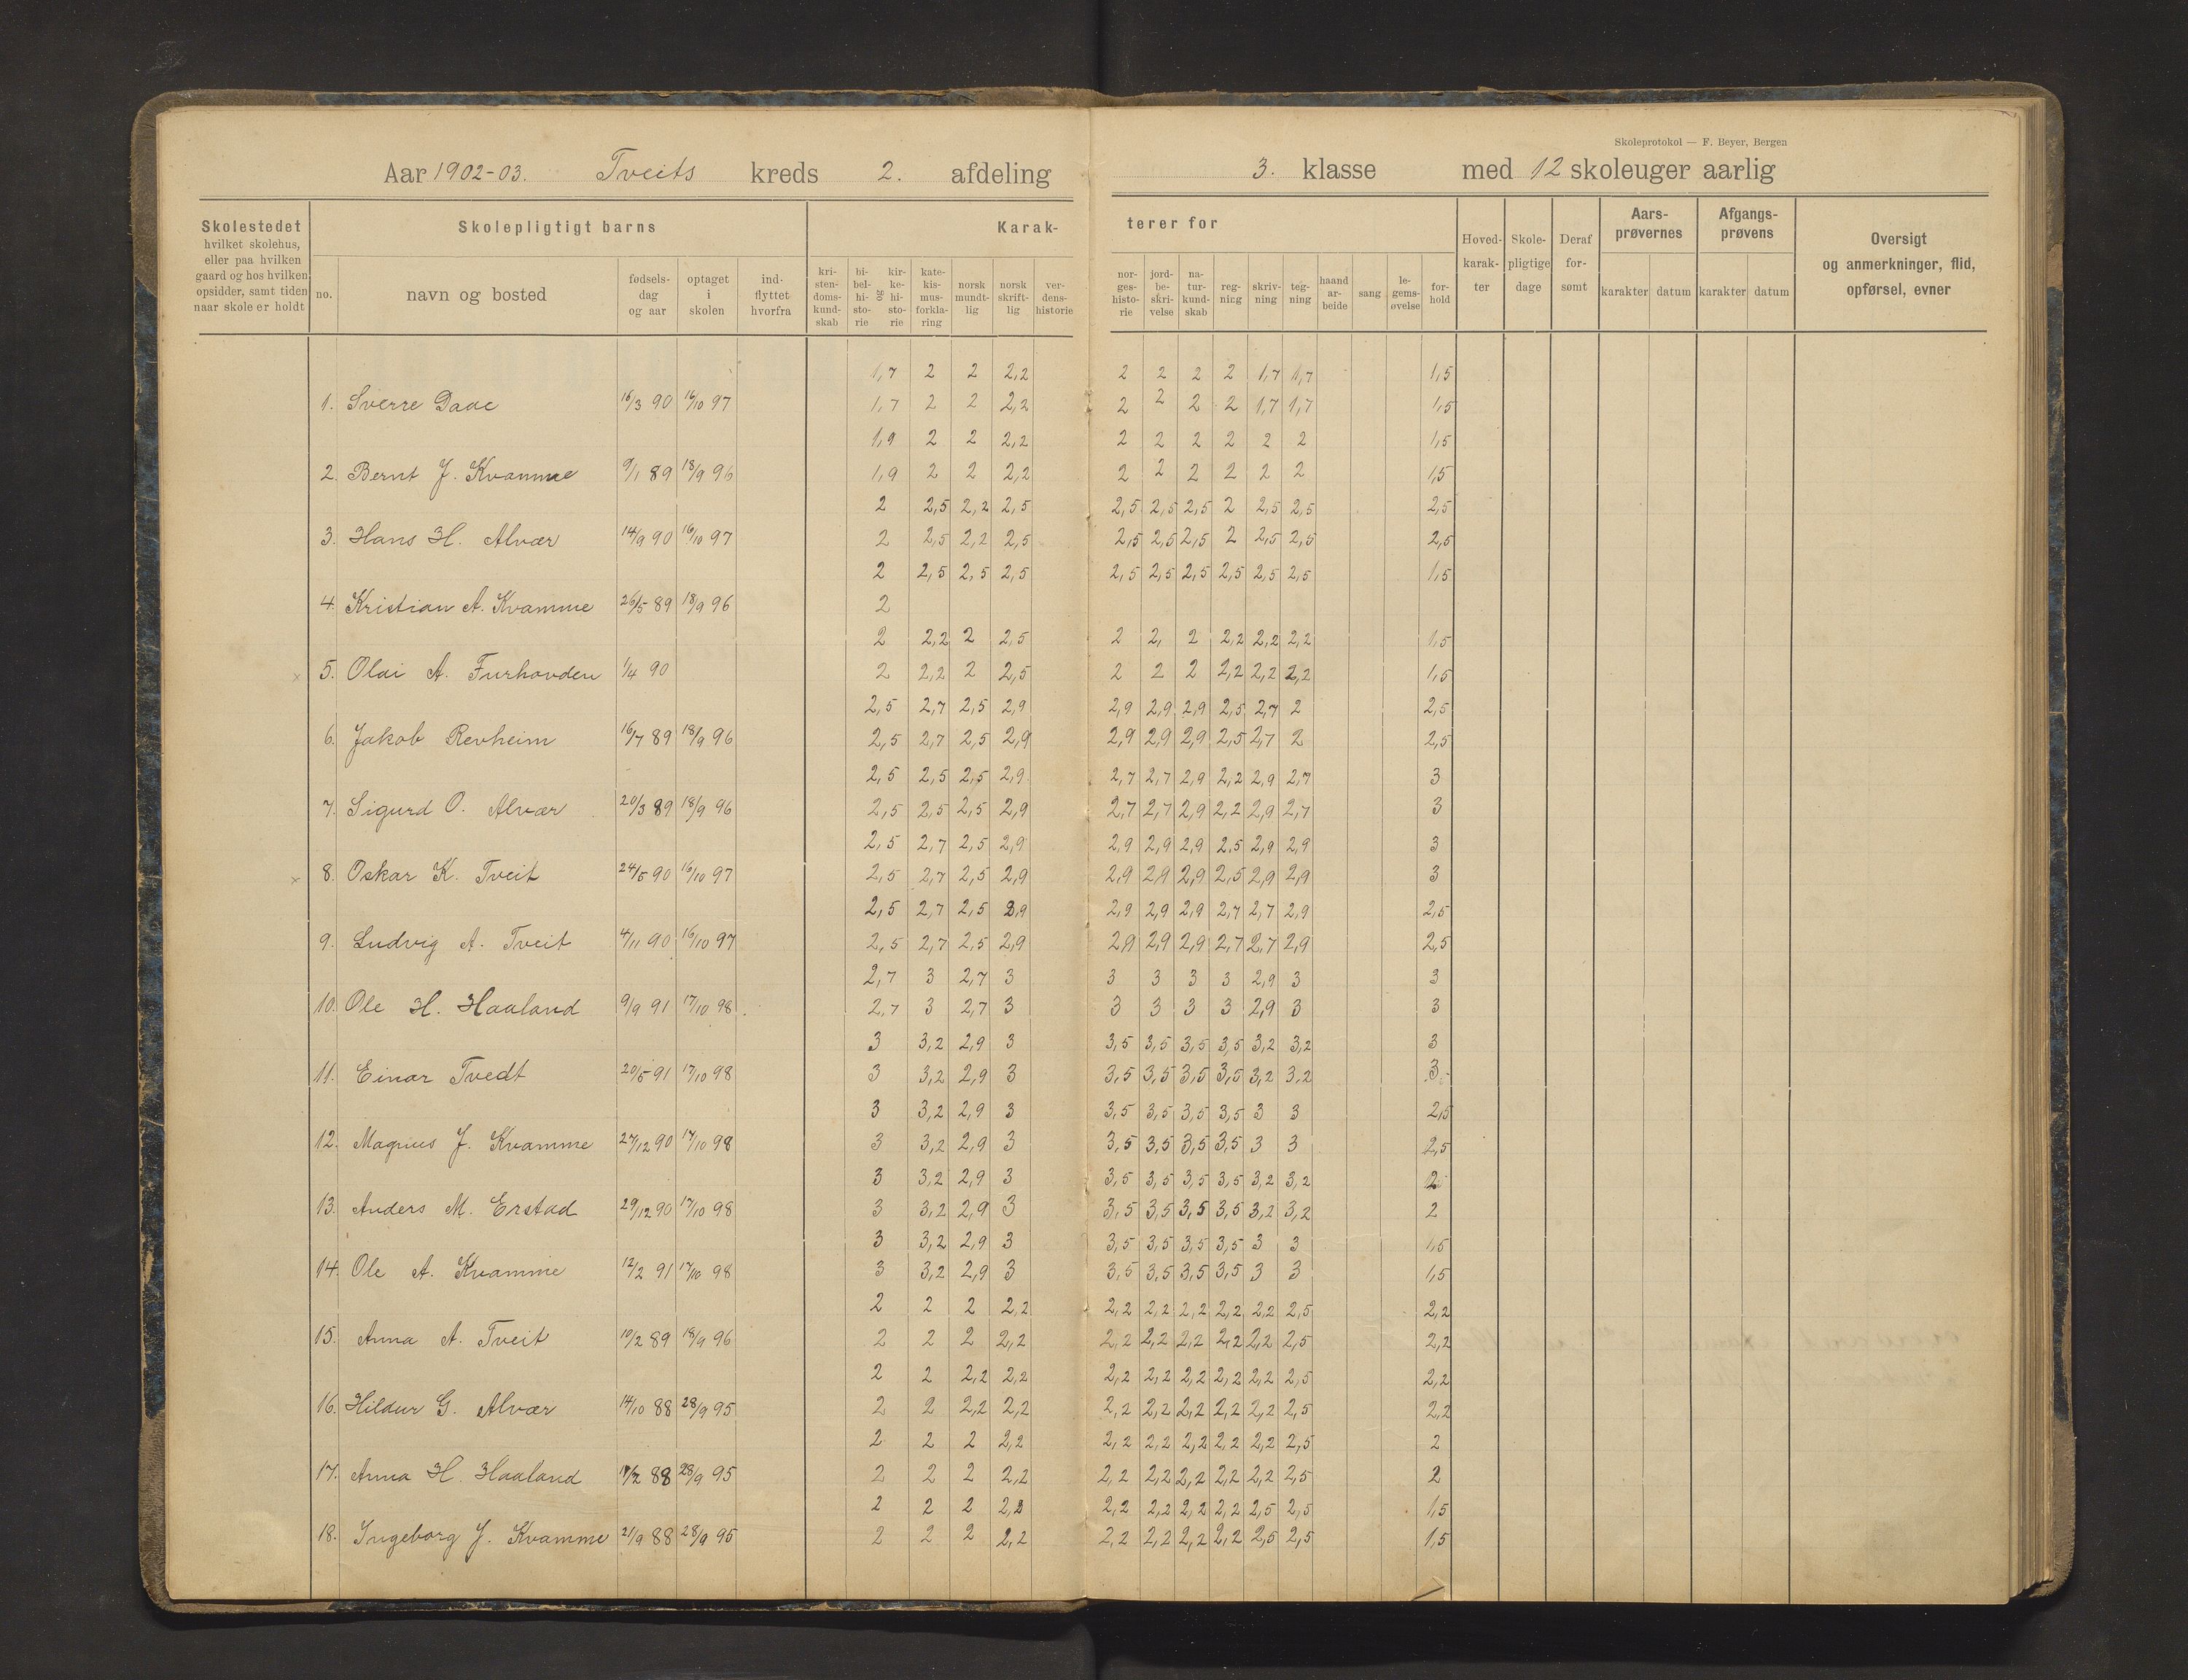 Skoleprotokol — F. Beyer, Bergen
Aar 1902-03. Tveits kreds 2. afdeling 3. klasse med 12 skoleuger aarlig
Skolestedet hvilket skolehus, eller paa hvilken gaard og hos hvilken opsidder, samt tiden naar skole er holdt
Skolepligtigt barns
no. navn og bosted fødsels-dag og aar optaget i skolen ind-flyttet hvorfra
Karak-terer for
kri-sten-doms-kund-skab bi-bel-hi-sto-rie og kir-ke-hi-sto-rie kate-kis-mus-forkla-ring norsk mundt-lig norsk skrift-lig ver-dens-historie nor-ges-histo-rie jord-be-skri-velse na-tur-kund-skab reg-ning skriv-ning teg-ning haand ar-beide sang le-gems-øvelse for-hold
Hoved-karak-ter Skole-pligtige dage Deraf for-sømt
Aars-prøvernes karakter datum
Afgangs-prøvens karakter datum
Oversigt og anmerkninger, flid, opførsel, evner
1,7 2 2 2,2 2 2 2 2 1,7 1,7 1,5
1. Sverre Daae 16/3 90 16/10 97 1,7 2 2 2,2 2 2 2 2 1,7 1,7 1,5
1,9 2 2 2,2 2 2 2 2 2 2 1,5
2. Bernt J. Kvamme 9/1 89 18/9 96 1,9 2 2 2,2 2 2 2 2 2 2 1,5
2 2,5 2,2 2,5 2,5 2,5 2,5 2 2,5 2,5 2,5
3. Hans H. Alvær 14/9 90 16/10 97 2 2,5 2,2 2,5 2,5 2,5 2,5 2 2,5 2,5 2,5
2 2,5 2,5 2,5 2,5 2,5 2,5 2,5 2,5 2,5 1,5
4. Kristian A. Kvamme 26/5 89 18/9 96 2
2 2,2 2 2,5 2 2, 2 2,2 2,2 2,2 1,5
x 5. Olai A. Furhovden 1/4 90 2 2,2 2 2,5 2 2 2 2,2 2,2 2,2 1,5
2,5 2,7 2,5 2,9 2,9 2,9 2,9 2,5 2,7 2 2,5
6. Jakob Revheim 16/7 89 18/9 96 2,5 2,7 2,5 2,9 2,9 2,9 2,9 2,5 2,7 2 2,5
2,5 2,5 2,5 2,9 2,7 2,7 2,9 2,2 2,9 2,7 3
7. Sigurd O. Alvær 20/3 89 18/9 96 2,5 2,5 2,5 2,9 2,7 2,7 2,9 2,2 2,9 2,7 3
2,5 2,7 2,5 2,9 2,9 2,9 2,9 2,5 2,9 2,9 3
x 8. Oskar K. Tveit 24/5 90 16/10 97 2,5 2,7 2,5 2,9 2,9 2,9 2,9 2,5 2,9 2,9 3
2,5 2,7 2,5 2,9 2,9 2,9 2,9 2,7 2,7 2,9 2,5
9. Ludvig A. Tveit 4/11 90 16/10 97 2,5 2,7 2,5 2,9 2,9 2,9 2,9 2,7 2,7 2,9 2,5
2,7 3 2,7 3 3 3 3 3 2,9 3 3
10. Ole H. Haaland 9/9 91 17/10 98 2,7 3 2,7 3 3 3 3 3 2,9 3 3
3 3,2 2,9 3 3,5 3,5 3,5 3,5 3,2 3,2 3
11. Einar Tvedt 20/5 91 17/10 98 3 3,2 2,9 3 3,5 3,5 3,5 3,5 3,2 3,2 3
3 3,2 2,9 3 3,5 3,5 3,5 3,5 3 3 2,5
12. Magnus J. Kvamme 27/12 90 17/10 98 3 3,2 2,9 3 3,5 3,5 3,5 3,5 3 3 2,5
3 3,2 2,9 3 3,5 3,5 3,5 3,5 3,2 3,2 2
13. Anders M. Erstad 29/12 90 17/10 98 3 3,2 2,9 3 3,5 3,5 3,5 3,5 3,2 3,2 2
3 3,2 2,9 3 3,5 3,5 3,5 3,5 3 3 1,5
14. Ole A. Kvamme 12/2 91 17/10 98 3 3,2 2,9 3 3,5 3,5 3,5 3,5 3 3 1,5
2 2 2 2,2 2,2 2,2 2,2 2,2 2,2 2,5 2,2
15. Anna A. Tveit 10/2 89 18/9 96 2 2 2 2,2 2,2 2,2 2,2 2,2 2,2 2,5 2,2
2 2 2,2 2,2 2,2 2,2 2,2 2,2 2,2 2,5 2,2
16. Hildur G. Alvær 14/10 88 28/9 95 2 2 2,2 2,2 2,2 2,2 2,2 2,2 2,2 2,5 2,2
2 2 2 2,2 2,2 2,2 2,2 2,2 2,2 2,5 2
17. Anna H. Haaland 88 28/9 95 2 2 2 2,2 2,2 2,2 2,2 2,2 2,2 2,5 2
2 2 2 2,2 2,2 2,2 2,2 2,2 2,5 2,5 1,5
18. Ingeborg J. Kvamme 21/9 88 28/9 95 2 2 2 2,2 2,2 2,2 2,2 2,2 2,5 2,5 1,5